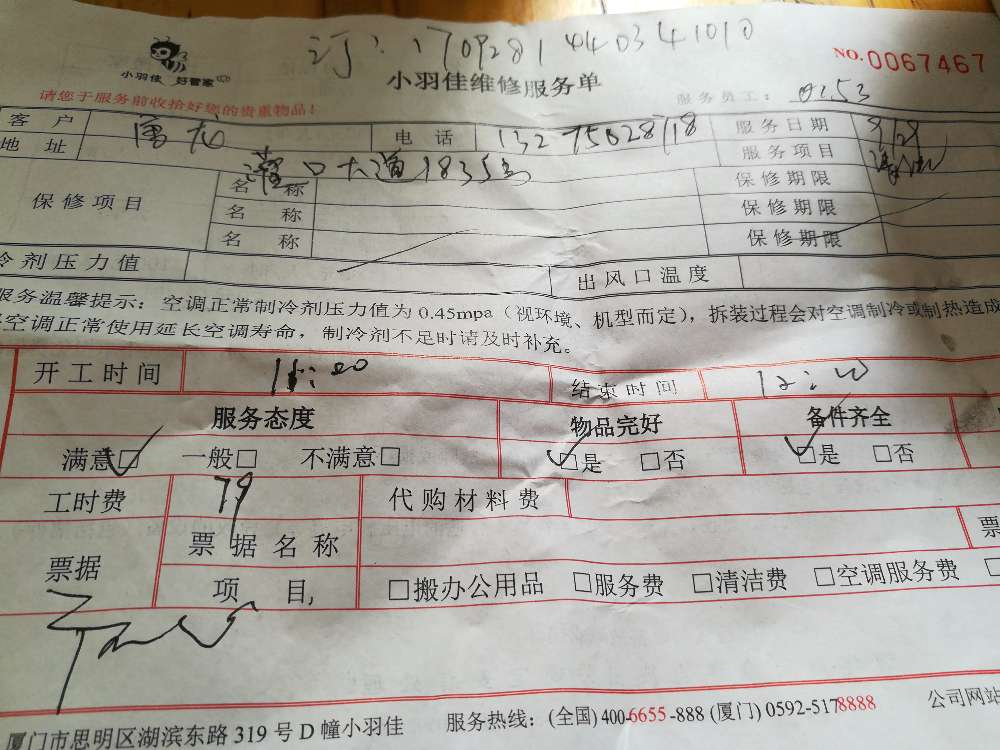 订：1709281440341010
小羽佳 好管家
小羽佳维修服务单
NO.0067467
请您于服务前收拾好您的贵重物品！
服务员工：0253
客 户
电 话 13275028718
服务日期 9/29
地 址 灌口大道1835号
服务项目
保修项目
名 称
保修期限
名 称
保修期限
名 称
保修期限
冷剂压力值
出风口温度
服务温馨提示：空调正常制冷剂压力值为 0.45mpa（视环境、机型而定），拆装过程会对空调制冷或制热造成
空调正常使用延长空调寿命，制冷剂不足时请及时补充。
开工时间 11:00
结束时间 12:00
服务态度 物品完好 备件齐全
满意□ 一般□ 不满意□ □是 □否 □是 □否
工时费 79 代购材料费
票据
票据名称
票
项 目,
□搬办公用品 □服务费 □清洁费 □空调服务费 □
厦门市思明区湖滨东路 319 号 D 幢小羽佳 服务热线：(全国) 400-6655-888 (厦门) 0592-5178888 公司网站